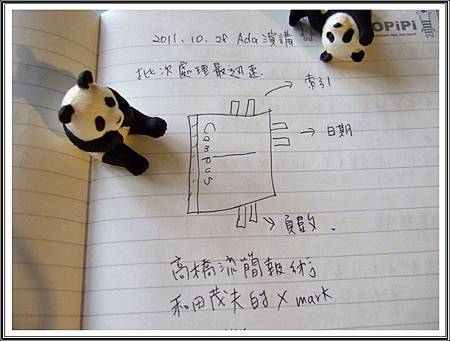 2011.10.28 Ada 演講
OPiPi
批次處理最迅速
索引
Campus
日期
頁數.
高橋流簡報術
和田茂夫的 X mark